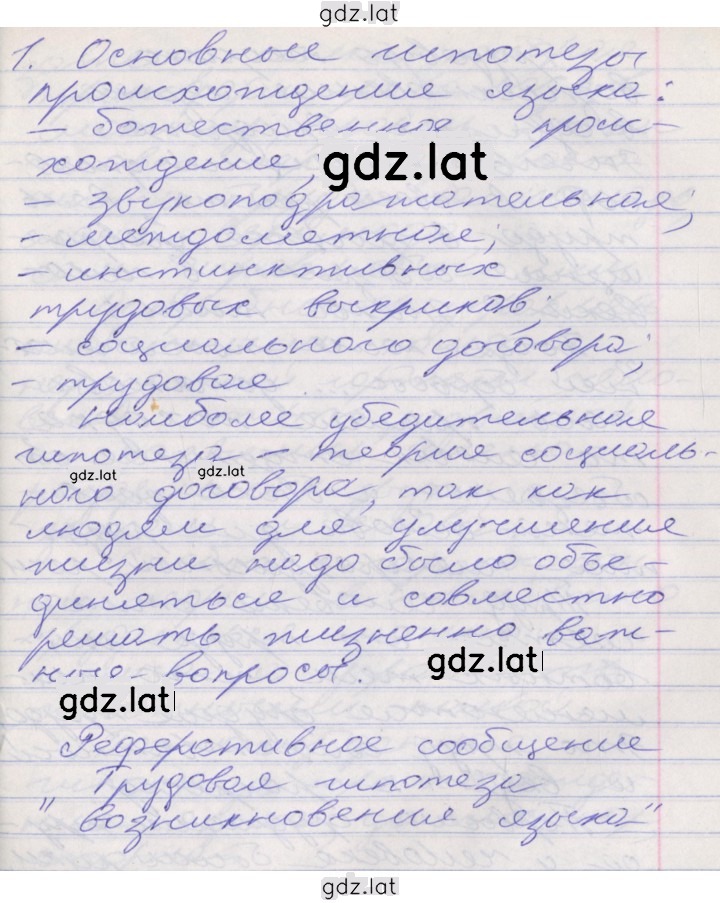 gdz.lat
1. Основные гипотезы
происхождения языка:
- божественное проис-
хождение;
gdz.lat
- звукоподражательная;
- междометная;
- инстинктивных
трудовых выкриков;
- социального договора;
- трудовая.
Наиболее убедительная
гипотеза - теория социаль-
gdz.lat
gdz.lat
ного договора, так как
людям для улучшения
жизни надо было объе-
диняться и совместно
решать жизненно важ-
ные вопросы.
gdz.lat
gdz.lat
Реферативное сообщение
"Трудовая гипотеза
возникновения языка"
gdz.lat